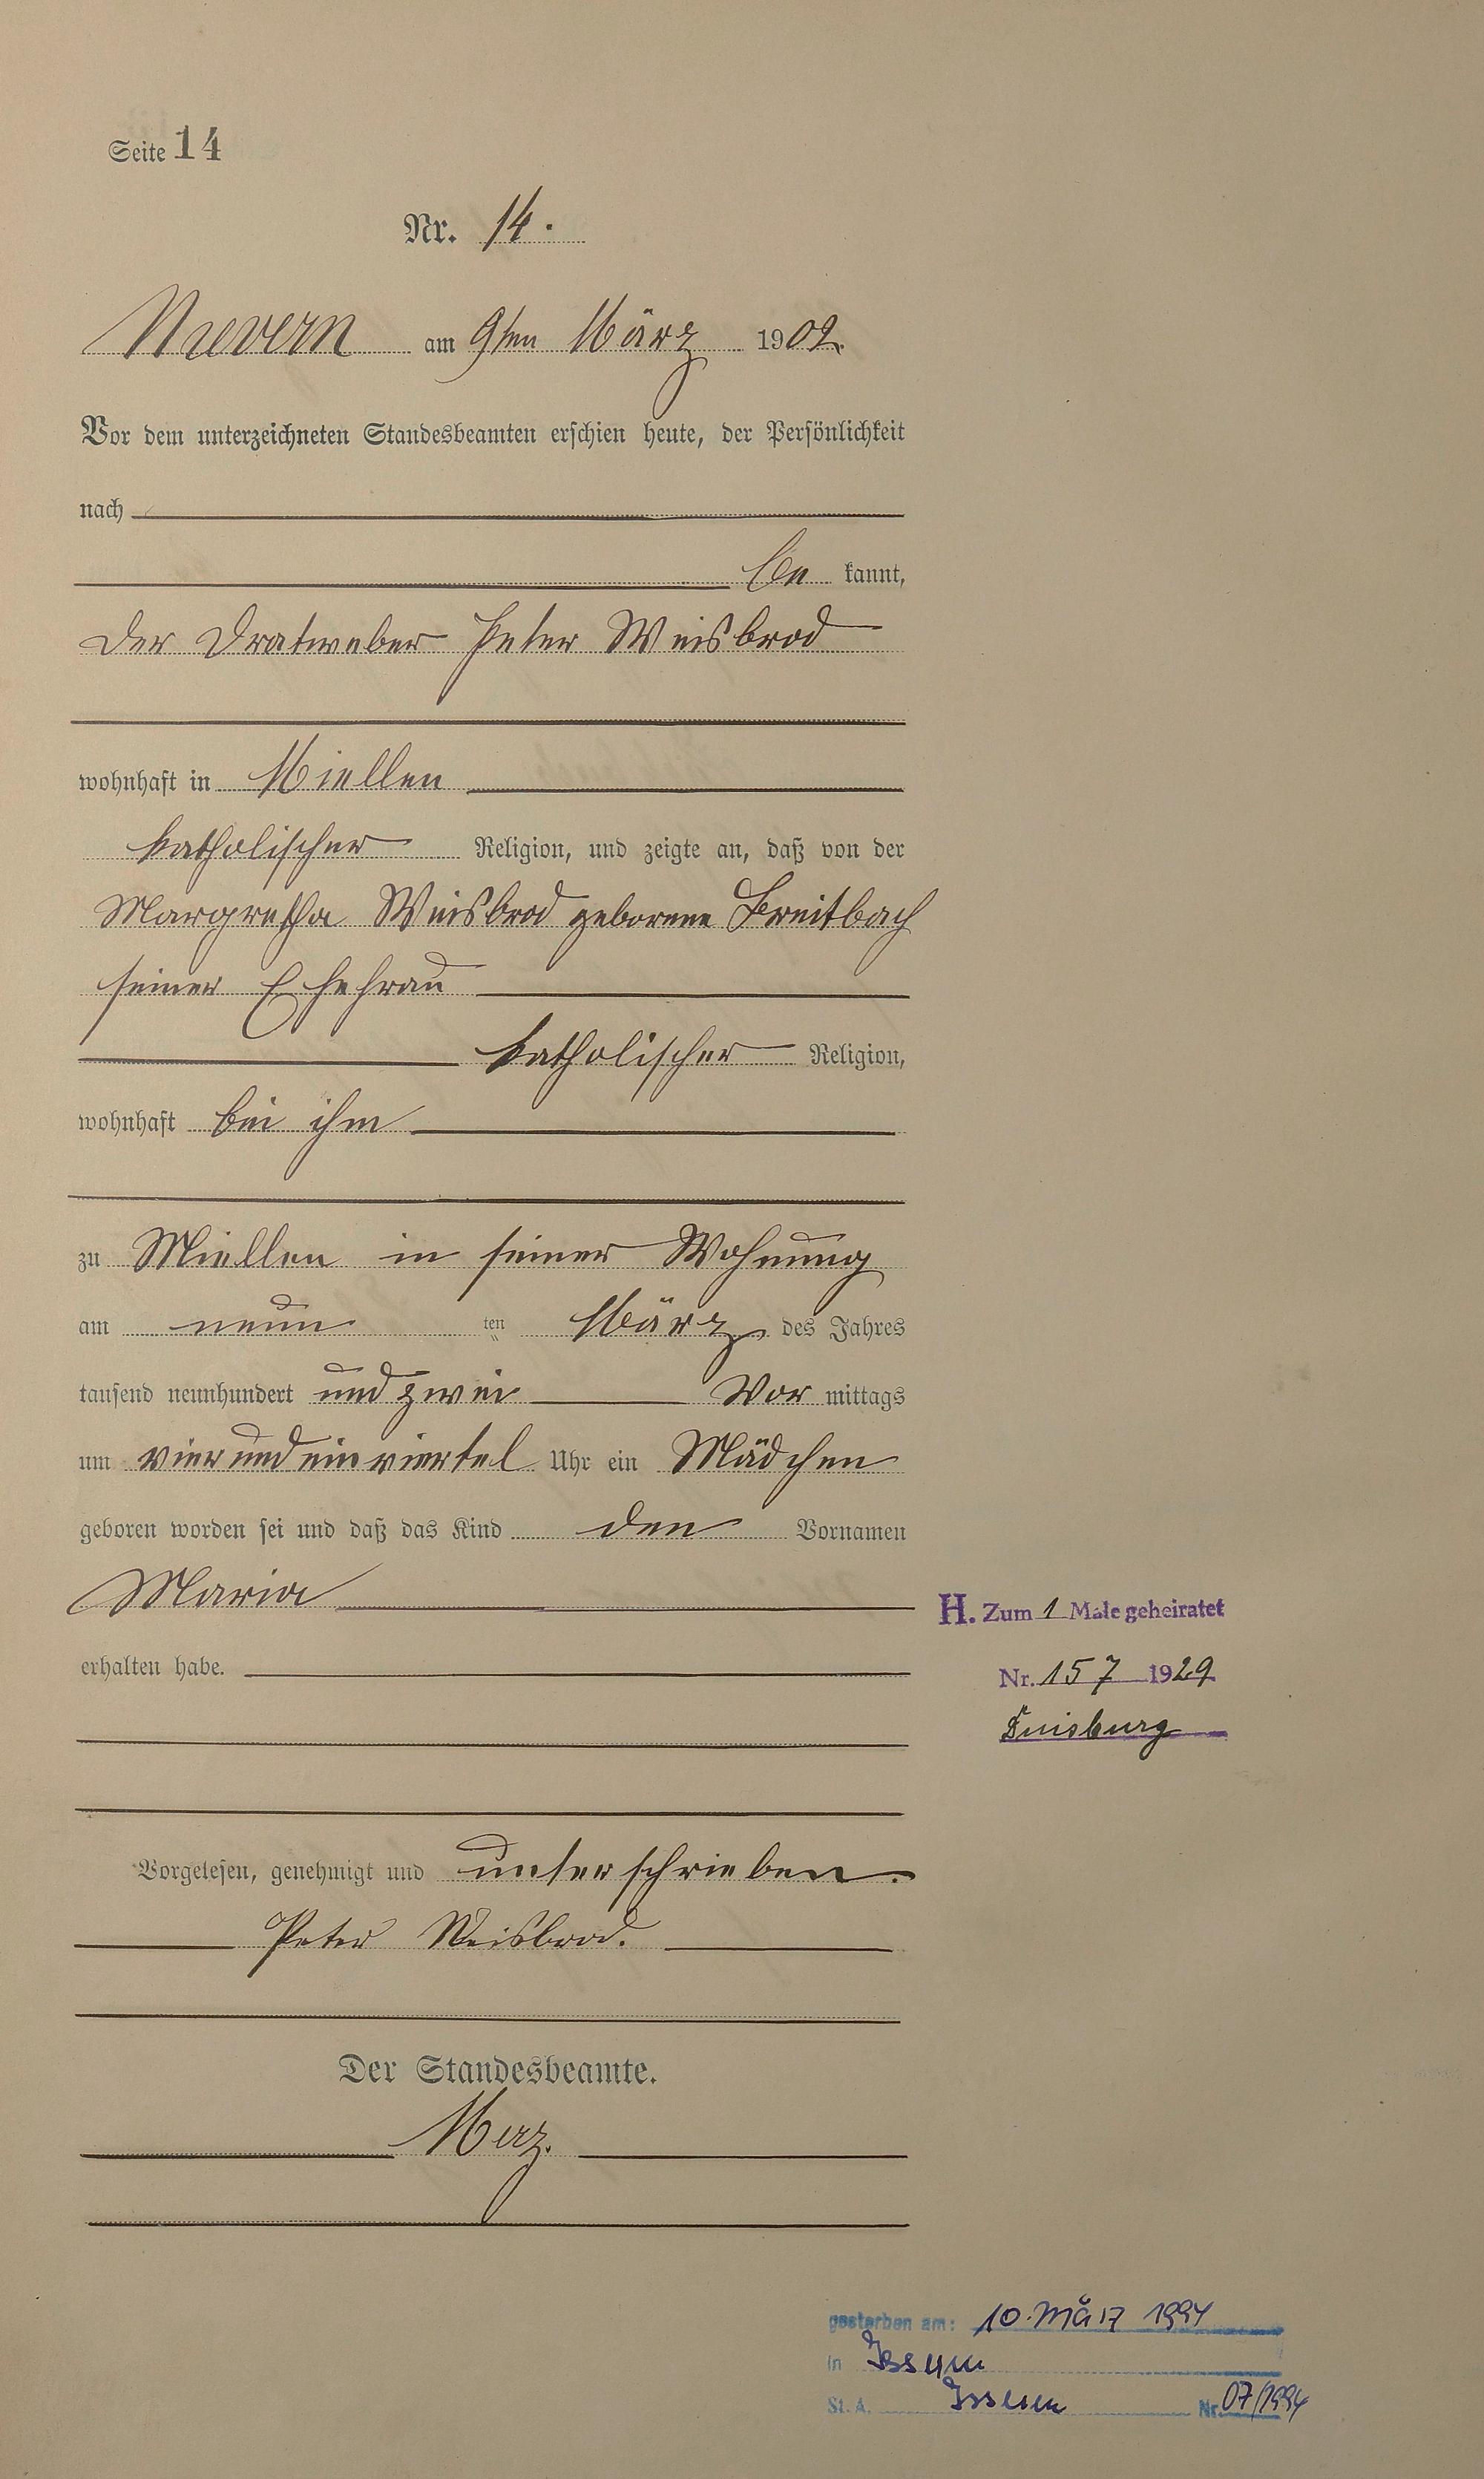 Seite 14
Nr. 14.
Nievern am 9ten März 1902.
Vor dem unterzeichneten Standesbeamten erschien heute, der Persönlichkeit
nach
be kannt,
der Dratweber Peter Weisbrod
wohnhaft in Miellen
katholischer Religion, und zeigte an, daß von der
Margretha Weisbrod geborene Breitbach
seiner Ehefrau
katholischer Religion,
wohnhaft bei ihm
zu Miellen in seiner Wohnung
am neun ten März des Jahres
tausend neunhundert und zwei Vor mittags
um vier und ein viertel Uhr ein Mädchen
geboren worden sei und daß das Kind den Vornamen
Maria
erhalten habe.
H. Zum 1 Male geheiratet
Nr. 157 1929
Duisburg
Vorgelesen, genehmigt und unterschrieben.
Peter Weisbrod.
Der Standesbeamte.
Merz.
gestorben am: 10. März 1994
in Issum
St. A. Issum Nr. 07/1994